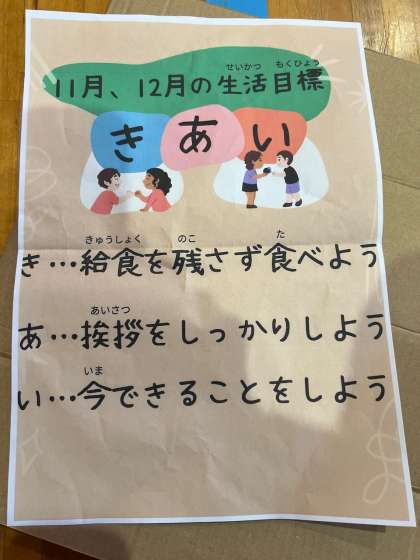 11月、12月の生活目標
せいかつ もくひょう
きあい
き…給食を残さず食べよう
きゅうしょく のこ た
あ…挨拶をしっかりしよう
あいさつ
い…今できることをしよう
いま